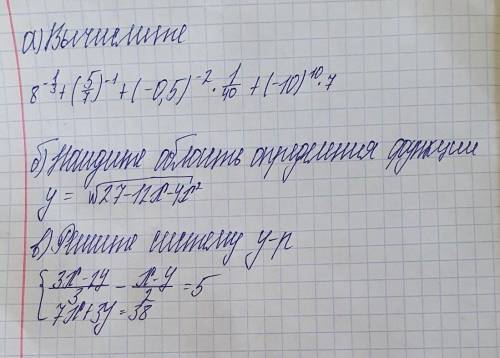 а) Вычислите
8^{-\frac{1}{3}} + (\frac{5}{7})^{-1} + (-0,5)^{-2} \cdot \frac{1}{40} + (-10)^{10} \cdot 7
б) Найдите область определения функции
y = \sqrt{27-12x-4x^2}
в) Решите систему у-р
\frac{3x-2y}{3} - \frac{x-y}{2} = 5
7x+3y=38